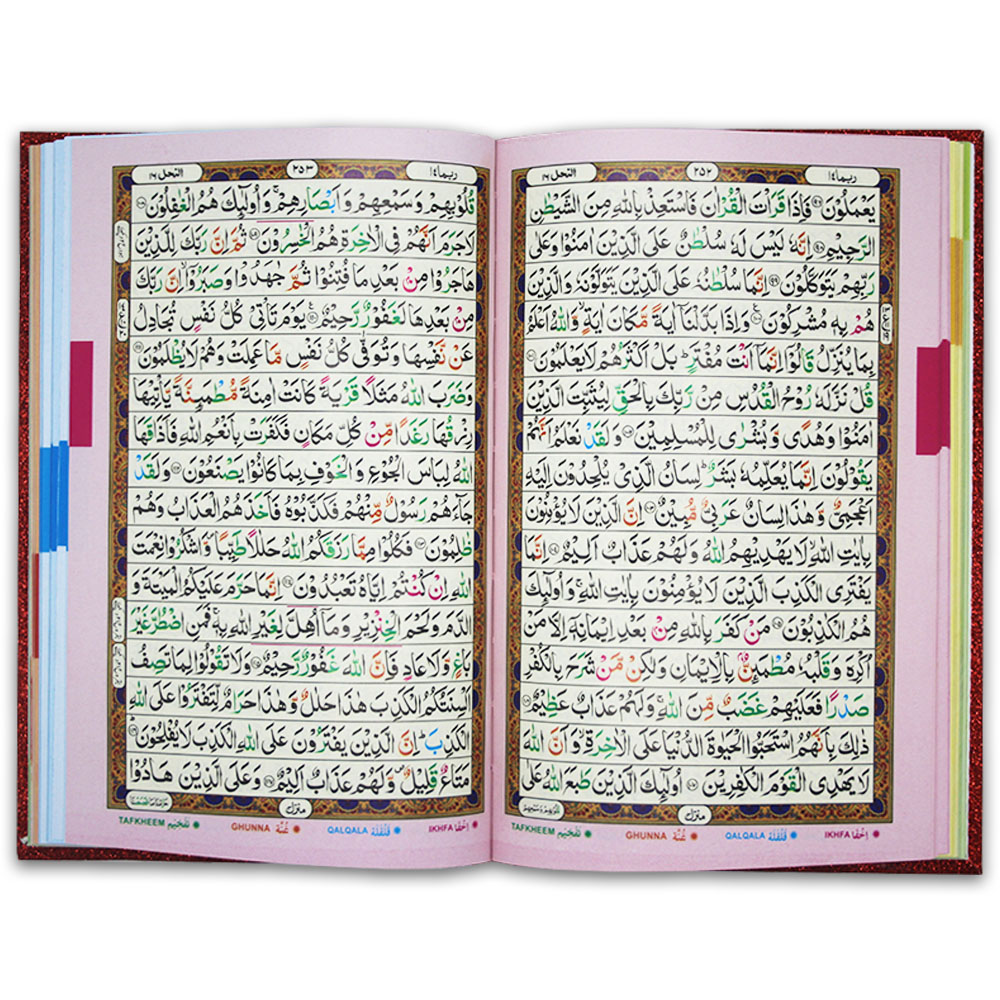 ربما ١٤
٢٥٢
النحل ١٦
يَعْمَلُوْنَ ۹۷ فَاِذَا قَرَاْتَ الْقُرْاٰنَ فَاسْتَعِذْ بِاللّٰهِ مِنَ الشَّيْطٰنِ
الرَّجِيْمِ ۹۸ اِنَّهٗ لَيْسَ لَهٗ سُلْطٰنٌ عَلَى الَّذِيْنَ اٰمَنُوْا وَعَلٰى
رَبِّهِمْ يَتَوَكَّلُوْنَ ۹۹ اِنَّمَا سُلْطٰنُهٗ عَلَى الَّذِيْنَ يَتَوَلَّوْنَهٗ وَالَّذِيْنَ
هُمْ بِهٖ مُشْرِكُوْنَ ۱۰۰ وَاِذَا بَدَّلْنَاۤ اٰيَةً مَّكَانَ اٰيَةٍ وَّاللّٰهُ اَعْلَمُ
بِمَا يُنَزِّلُ قَالُوْۤا اِنَّمَاۤ اَنْتَ مُفْتَرٍ ؕ بَلْ اَكْثَرُهُمْ لَا يَعْلَمُوْنَ ۱۰۱
قُلْ نَزَّلَهٗ رُوْحُ الْقُدُسِ مِنْ رَّبِّكَ بِالْحَقِّ لِيُثَبِّتَ الَّذِيْنَ
اٰمَنُوْا وَهُدًى وَّبُشْرٰى لِلْمُسْلِمِيْنَ ۱۰۲ وَلَقَدْ نَعْلَمُ اَنَّهُمْ
يَقُوْلُوْنَ اِنَّمَا يُعَلِّمُهٗ بَشَرٌ ؕ لِسَانُ الَّذِيْ يُلْحِدُوْنَ اِلَيْهِ
اَعْجَمِيٌّ وَّهٰذَا لِسَانٌ عَرَبِيٌّ مُّبِيْنٌ ۱۰۳ اِنَّ الَّذِيْنَ لَا يُؤْمِنُوْنَ
بِاٰيٰتِ اللّٰهِ ۙ لَا يَهْدِيْهِمُ اللّٰهُ وَلَهُمْ عَذَابٌ اَلِيْمٌ ۱۰۴ اِنَّمَا
يَفْتَرِى الْكَذِبَ الَّذِيْنَ لَا يُؤْمِنُوْنَ بِاٰيٰتِ اللّٰهِ ۚ وَاُولٰٓئِكَ
هُمُ الْكٰذِبُوْنَ ۱۰۵ مَنْ كَفَرَ بِاللّٰهِ مِنْۢ بَعْدِ اِيْمَانِهٖۤ اِلَّا مَنْ
اُكْرِهَ وَقَلْبُهٗ مُطْمَئِنٌّۢ بِالْاِيْمَانِ وَلٰكِنْ مَّنْ شَرَحَ بِالْكُفْرِ
صَدْرًا فَعَلَيْهِمْ غَضَبٌ مِّنَ اللّٰهِ ۚ وَلَهُمْ عَذَابٌ عَظِيْمٌ ۱۰۶
ذٰلِكَ بِاَنَّهُمُ اسْتَحَبُّوا الْحَيٰوةَ الدُّنْيَا عَلَى الْاٰخِرَةِ ۙ وَاَنَّ اللّٰهَ
لَا يَهْدِى الْقَوْمَ الْكٰفِرِيْنَ ۱۰۷ اُولٰٓئِكَ الَّذِيْنَ طَبَعَ اللّٰهُ عَلٰى
منزل ۳
IKHFA اِخْفَا QALQALA قَلْقَلَة GHUNNA غُنَّة TAFKHEEM تَفْخِيْم
ربما ١٤
٢٥٣
النحل ١٦
قُلُوْبِهِمْ وَسَمْعِهِمْ وَاَبْصَارِهِمْ ۚ وَاُولٰٓئِكَ هُمُ الْغٰفِلُوْنَ ۱۰۸
لَا جَرَمَ اَنَّهُمْ فِى الْاٰخِرَةِ هُمُ الْخٰسِرُوْنَ ۱۰۹ ثُمَّ اِنَّ رَبَّكَ لِلَّذِيْنَ
هَاجَرُوْا مِنْۢ بَعْدِ مَا فُتِنُوْا ثُمَّ جٰهَدُوْا وَصَبَرُوْۤا ۙ اِنَّ رَبَّكَ
مِنْۢ بَعْدِهَا لَغَفُوْرٌ رَّحِيْمٌ ۱۱۰ يَوْمَ تَاْتِيْ كُلُّ نَفْسٍ تُجَادِلُ
عَنْ نَّفْسِهَا وَتُوَفّٰى كُلُّ نَفْسٍ مَّا عَمِلَتْ وَهُمْ لَا يُظْلَمُوْنَ ۱۱۱
وَضَرَبَ اللّٰهُ مَثَلًا قَرْيَةً كَانَتْ اٰمِنَةً مُّطْمَئِنَّةً يَّاْتِيْهَا
رِزْقُهَا رَغَدًا مِّنْ كُلِّ مَكَانٍ فَكَفَرَتْ بِاَنْعُمِ اللّٰهِ فَاَذَاقَهَا
اللّٰهُ لِبَاسَ الْجُوْعِ وَالْخَوْفِ بِمَا كَانُوْا يَصْنَعُوْنَ ۱۱۲ وَلَقَدْ
جَآءَهُمْ رَسُوْلٌ مِّنْهُمْ فَكَذَّبُوْهُ فَاَخَذَهُمُ الْعَذَابُ وَهُمْ
ظٰلِمُوْنَ ۱۱۳ فَكُلُوْا مِمَّا رَزَقَكُمُ اللّٰهُ حَلٰلًا طَيِّبًا ۪ وَّاشْكُرُوْا نِعْمَتَ
اللّٰهِ اِنْ كُنْتُمْ اِيَّاهُ تَعْبُدُوْنَ ۱۱۴ اِنَّمَا حَرَّمَ عَلَيْكُمُ الْمَيْتَةَ وَ
الدَّمَ وَلَحْمَ الْخِنْزِيْرِ وَمَاۤ اُهِلَّ لِغَيْرِ اللّٰهِ بِهٖ ۚ فَمَنِ اضْطُرَّ غَيْرَ
بَاغٍ وَّلَا عَادٍ فَاِنَّ اللّٰهَ غَفُوْرٌ رَّحِيْمٌ ۱۱۵ وَلَا تَقُوْلُوْا لِمَا تَصِفُ
اَلْسِنَتُكُمُ الْكَذِبَ هٰذَا حَلٰلٌ وَّهٰذَا حَرَامٌ لِّتَفْتَرُوْا عَلَى اللّٰهِ
الْكَذِبَ ؕ اِنَّ الَّذِيْنَ يَفْتَرُوْنَ عَلَى اللّٰهِ الْكَذِبَ لَا يُفْلِحُوْنَ ۱۱۶
مَتَاعٌ قَلِيْلٌ ۪ وَّلَهُمْ عَذَابٌ اَلِيْمٌ ۱۱۷ وَعَلَى الَّذِيْنَ هَادُوْا
منزل ۳
IKHFA اِخْفَا QALQALA قَلْقَلَة GHUNNA غُنَّة TAFKHEEM تَفْخِيْم